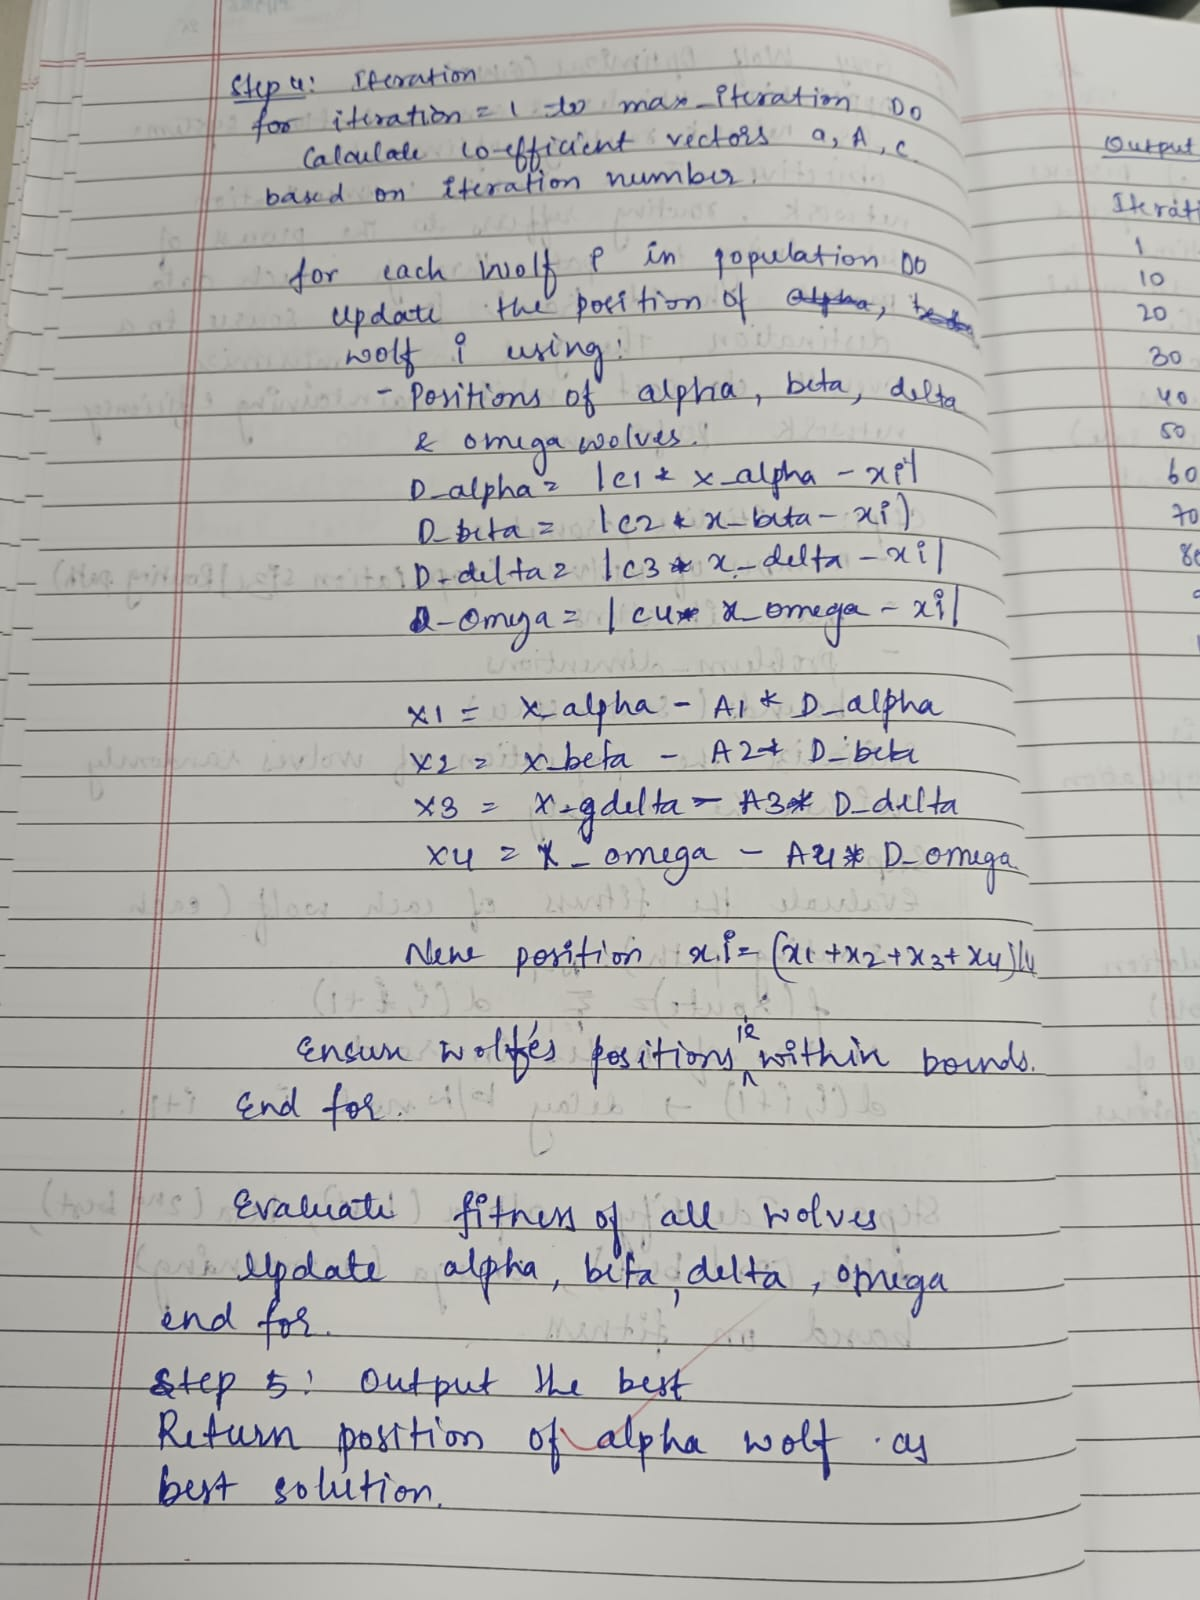 Step 4: Iteration
for iteration = 1 to max_iteration DO
Calculate co-efficient vectors a, A, C.
based on iteration number.
for each wolf i in population DO
Update the position of alpha,
wolf i using:
- Positions of alpha, beta, delta
& omega wolves.
D_alpha = |C1 * x_alpha - xi|
D_beta = |C2 * x_beta - xi|
D_delta = |C3 * x_delta - xi|
D_omega = |C4 * x_omega - xi|
x1 = x_alpha - A1 * D_alpha
x2 = x_beta - A2 * D_beta
x3 = x_delta - A3 * D_delta
x4 = x_omega - A4 * D_omega
New position xi = (x1 + x2 + x3 + x4)/4
Ensure wolf's positions is within bounds.
End for.
Evaluate fitness of all wolves
Update alpha, beta, delta, omega
end for.
Step 5: Output the best
Return position of alpha wolf as
best solution.
Output
Iterati
1
10
20
30
40
50
60
70
80